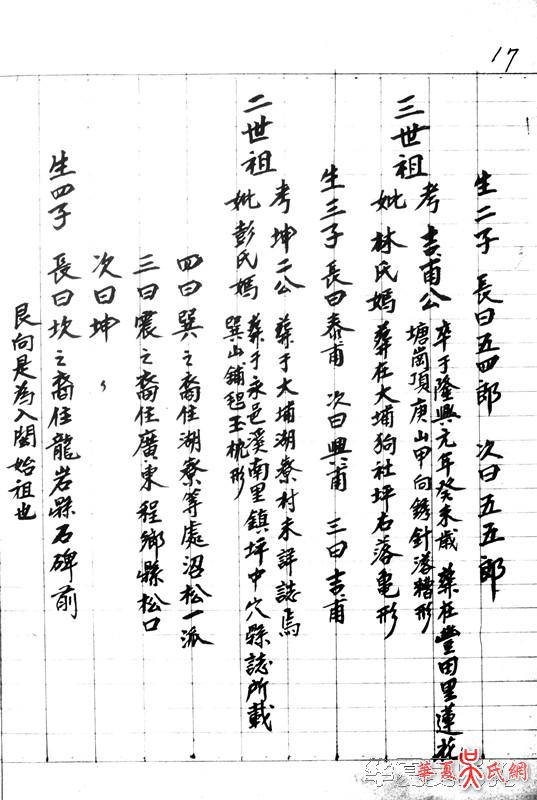 17
艮向是為入閩始祖也
生四子 長曰坎之裔住龍岩縣石碑前
次曰坤
三曰震之裔住廣東程鄉縣松口
四曰巽之裔住湖寮等處沼松一派
二世祖
考坤二公 葬于大埔湖寮村未詳誌焉
妣彭氏媽 葬于永邑溪南里鎮坪中穴縣誌所載
巽山鋪毡玉枕形
生三子 長曰泰甫 次曰興甫 三曰吉甫
三世祖
考吉甫公 卒于隆興元年癸未歲 葬在豐田里蓮花
塘崗頂庚山甲向銹針落糟形
妣林氏媽 葬在大埔狗社坪右落亀形
生二子 長曰五四郎 次曰五五郎
華夏吳氏網